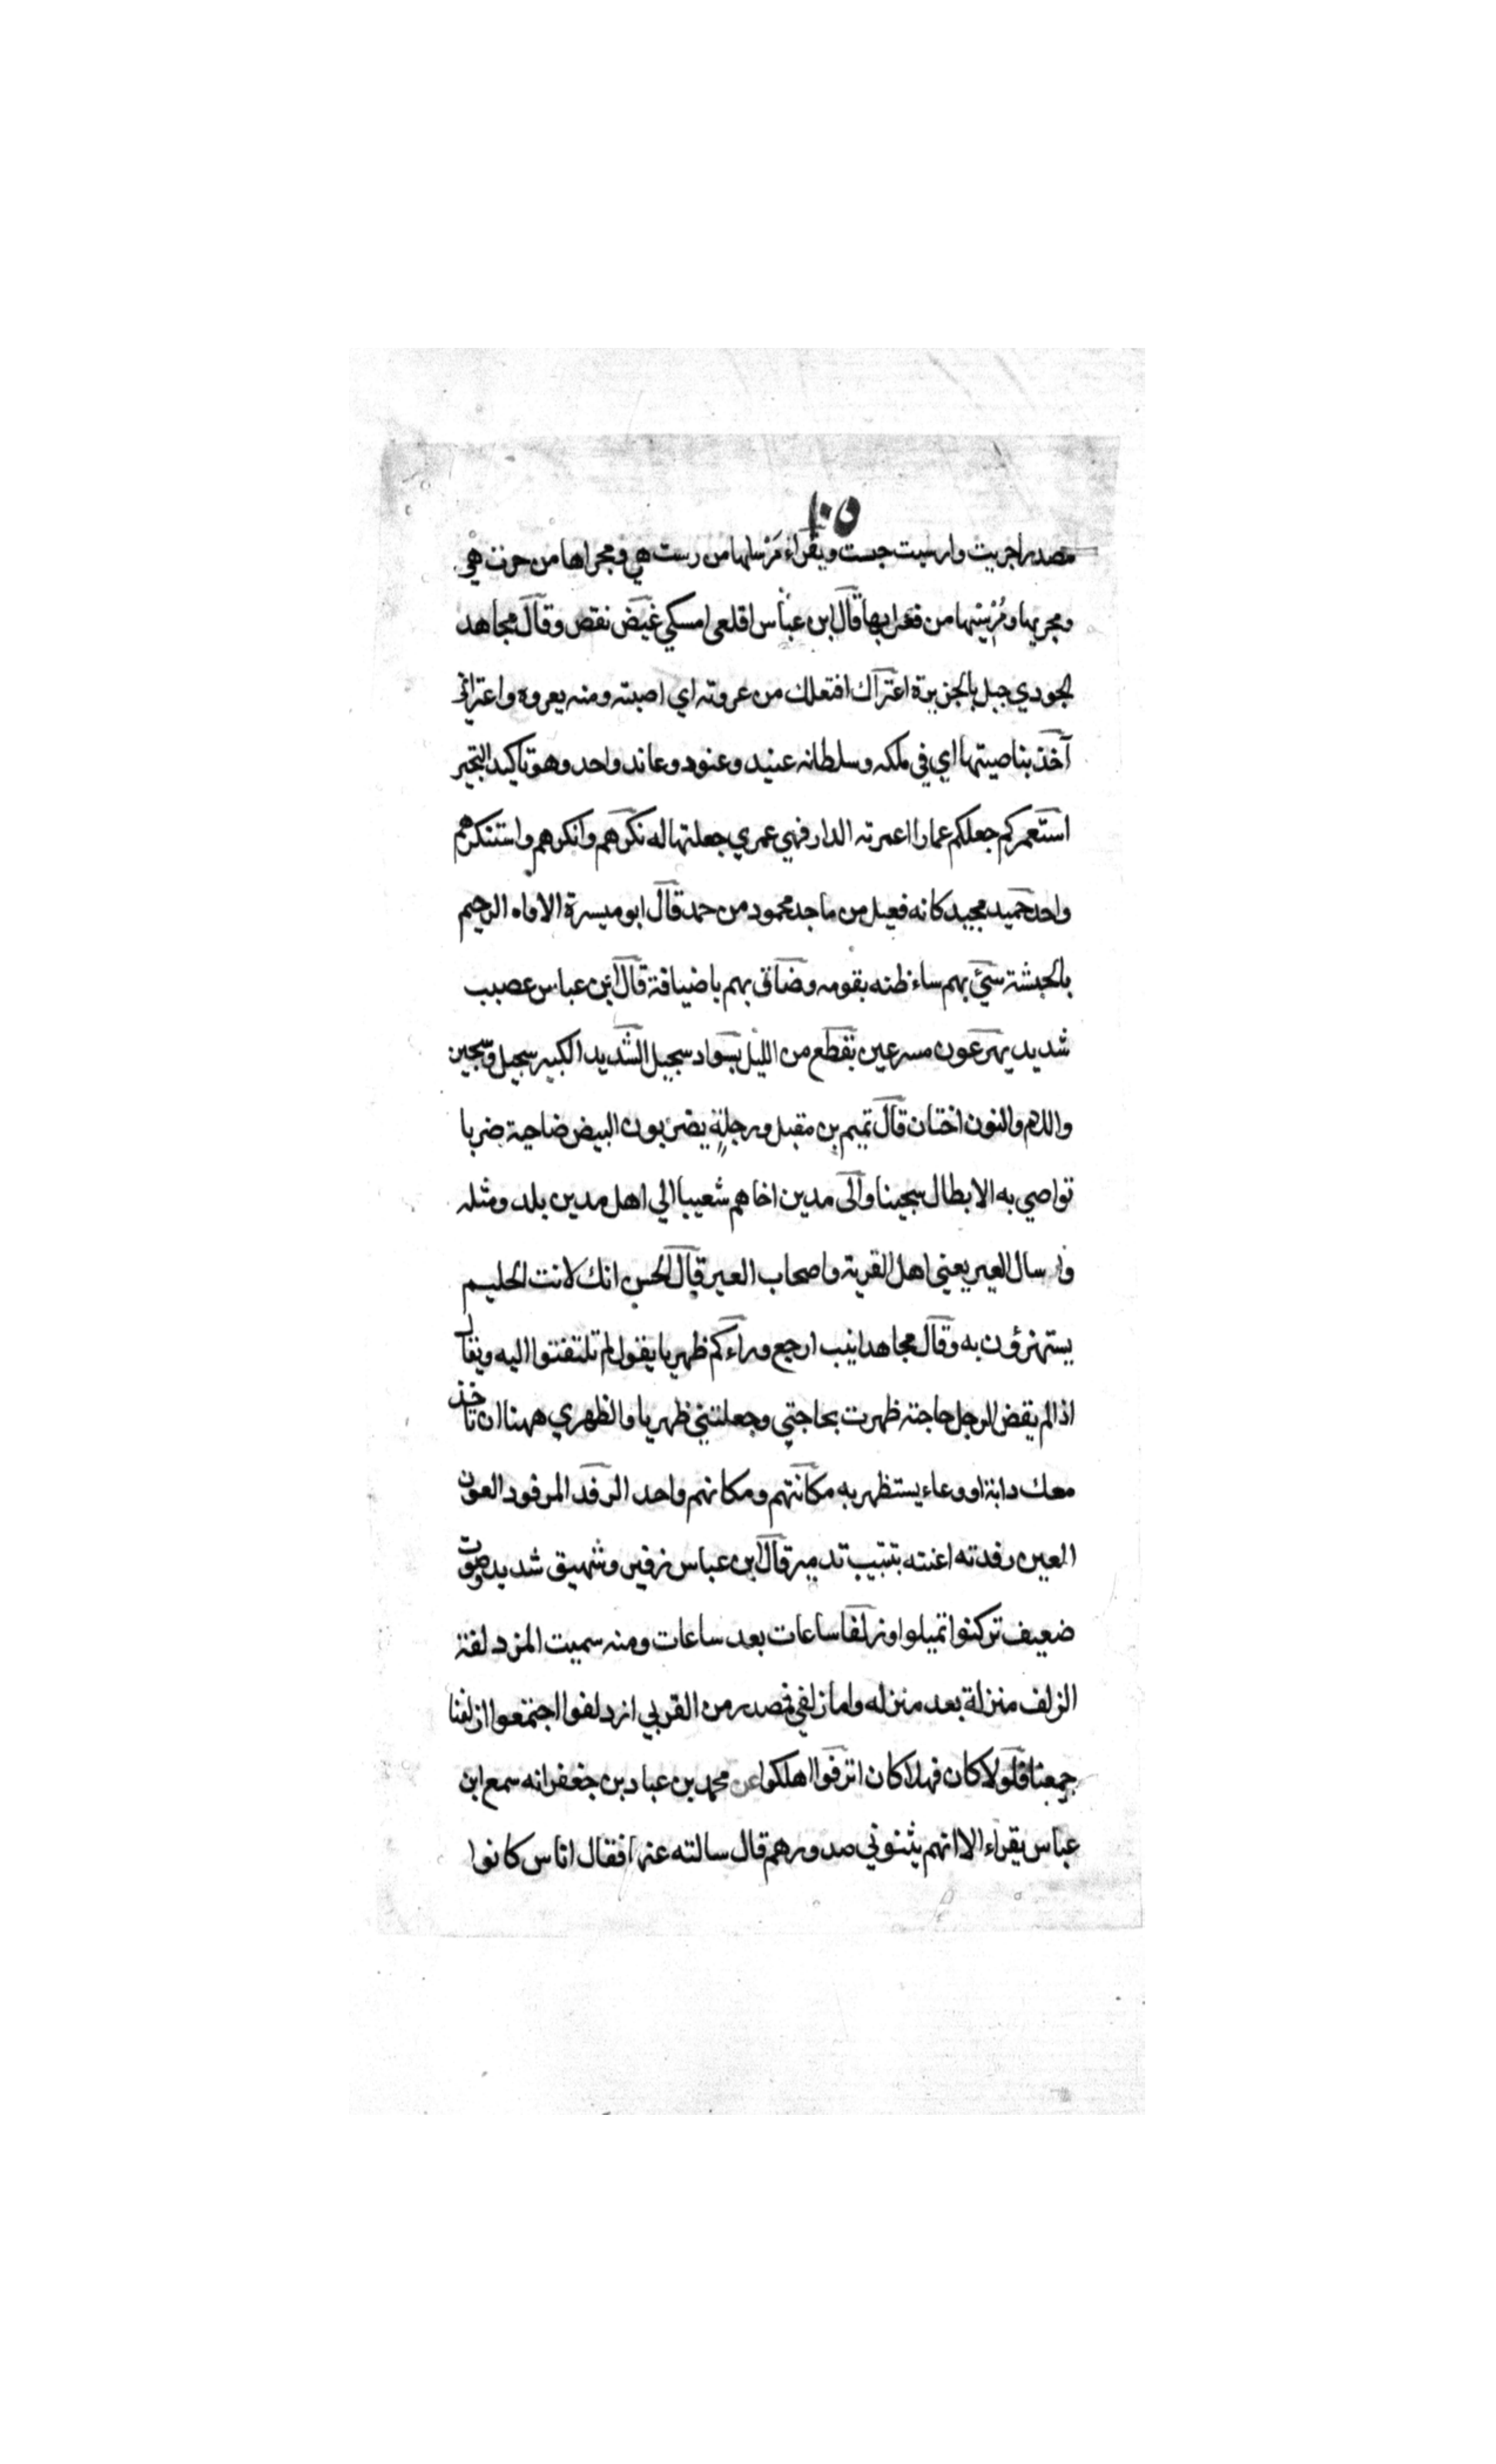 ١٠٥
مصدر اجريت وارسيت حبست ويقراء مَرْساها من رست هي ومجراها من جرت هي
ومجريها ومُرْسِيْها من فعل بها قال ابن عباس اقلعى امسكي غيض نقص وقال مجاهد
الجودي جبل بالجزيرة اعتراك افتعلك من عروته اي اصبته ومنه يعروه واعتراني
آخذ بناصيتها اي في ملكه وسلطانه عنيد وعنود وعاند واحد وهو تاكيد التجبر
استعمركم جعلكم عمارا اعمرته الدار فهي عمري جعلتها له نكرهم وانكرهم واستنكرهم
واحد حميد مجيد كانه فعيل من ماجد محمود من حمد قال ابو ميسرة الاواه الرحيم
بالحبشة سيئ بهم ساء ظنه بقومه وضاق بهم باضيافة قال ابن عباس عصيب
شديد يهرعون مسرعين بقطع من الليل بسواد سجيل الشديد الكبير سجيل وسجين
واللام والنون اختان قال تميم بن مقبل ورجلةٍ يضربون البيض ضاحية ضربا
تواصي به الابطال سجينا والى مدين اخاهم شعيبا الي اهل مدين بلد ومثله
وارسال العير يعني اهل القرية واصحاب العير قال الحسن انك لانت الحليم
يستهزؤن به وقال مجاهد انيب ارجع وراءكم ظهريا يقول لم تلتفتوا اليه ويقال
اذا لم يقض الرجل حاجته ظهرت بحاجتي وجعلتني ظهريا والظهري ههنا ان تاخذ
معك دابة او وعاء يستظهر به مكانتهم ومكانهم واحد الرفد المرفود العون
العين رفدته اعنته تتبيب تدمير قال ابن عباس زفير وشهيق شديد وصوت
ضعيف تركنوا تميلوا وزلفا ساعات بعد ساعات ومنه سميت المزدلفة
الزلف منزلة بعد منزله واما زلفي فمصدر من القربي ازدلفوا اجتمعوا ازلفنا
جمعنا فلولا كان فهلا كان اترفوا اهلكوا عن محمد بن عباد بن جعفر انه سمع ابن
عباس يقراء الا انهم يثنوني صدورهم قال سالته عنها فقال اناس كانوا